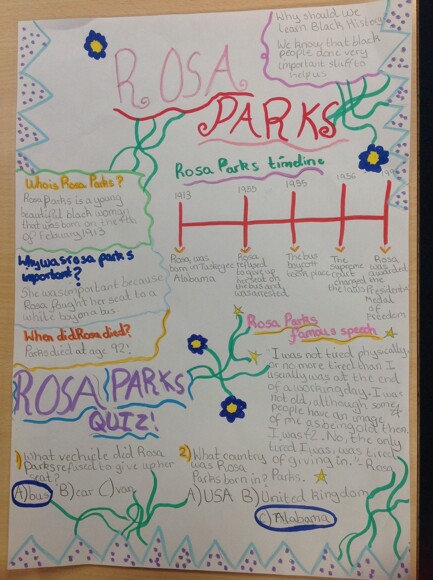 Why should we
learn Black History
We know that black
people done very
important stuff to
help us
ROSA
PARKS
Rosa Parks timeline
1913
1955
1955
1956
Rosa was
born in Tuskegee
Alabama
Rosa
refused
to give up
her seat on
the bus and
was arrested
The bus
boycott
took place
The
supreme
court
changed
the laws
Rosa
was awarded
the
Presidential
Medal
of
Freedom
Who is Rosa Parks?
Rosa Parks is a young
beautiful black woman
that was born on the 4th
of February 1913
Why was rosa parks
important?
She was important because
Rosa fought her seat to a
white boy on a bus
When did Rosa died?
Parks died at age 92!
Rosa Parks
famous speech
I was not tired physically
or no more tired than I
usually was at the end
of a working day. I was
not old, although some
people have an image
of me as being old then
I was 42. No, the only
tired I was, was tired
of giving in." Rosa
Parks.
ROSA PARKS
QUIZ!
1) What vechicle did Rosa
Parks refused to give up her
seat?
A) bus B) car C) van
2) What country
was Rosa
Parks born in?
A) USA B) United kingdom
C) Alabama